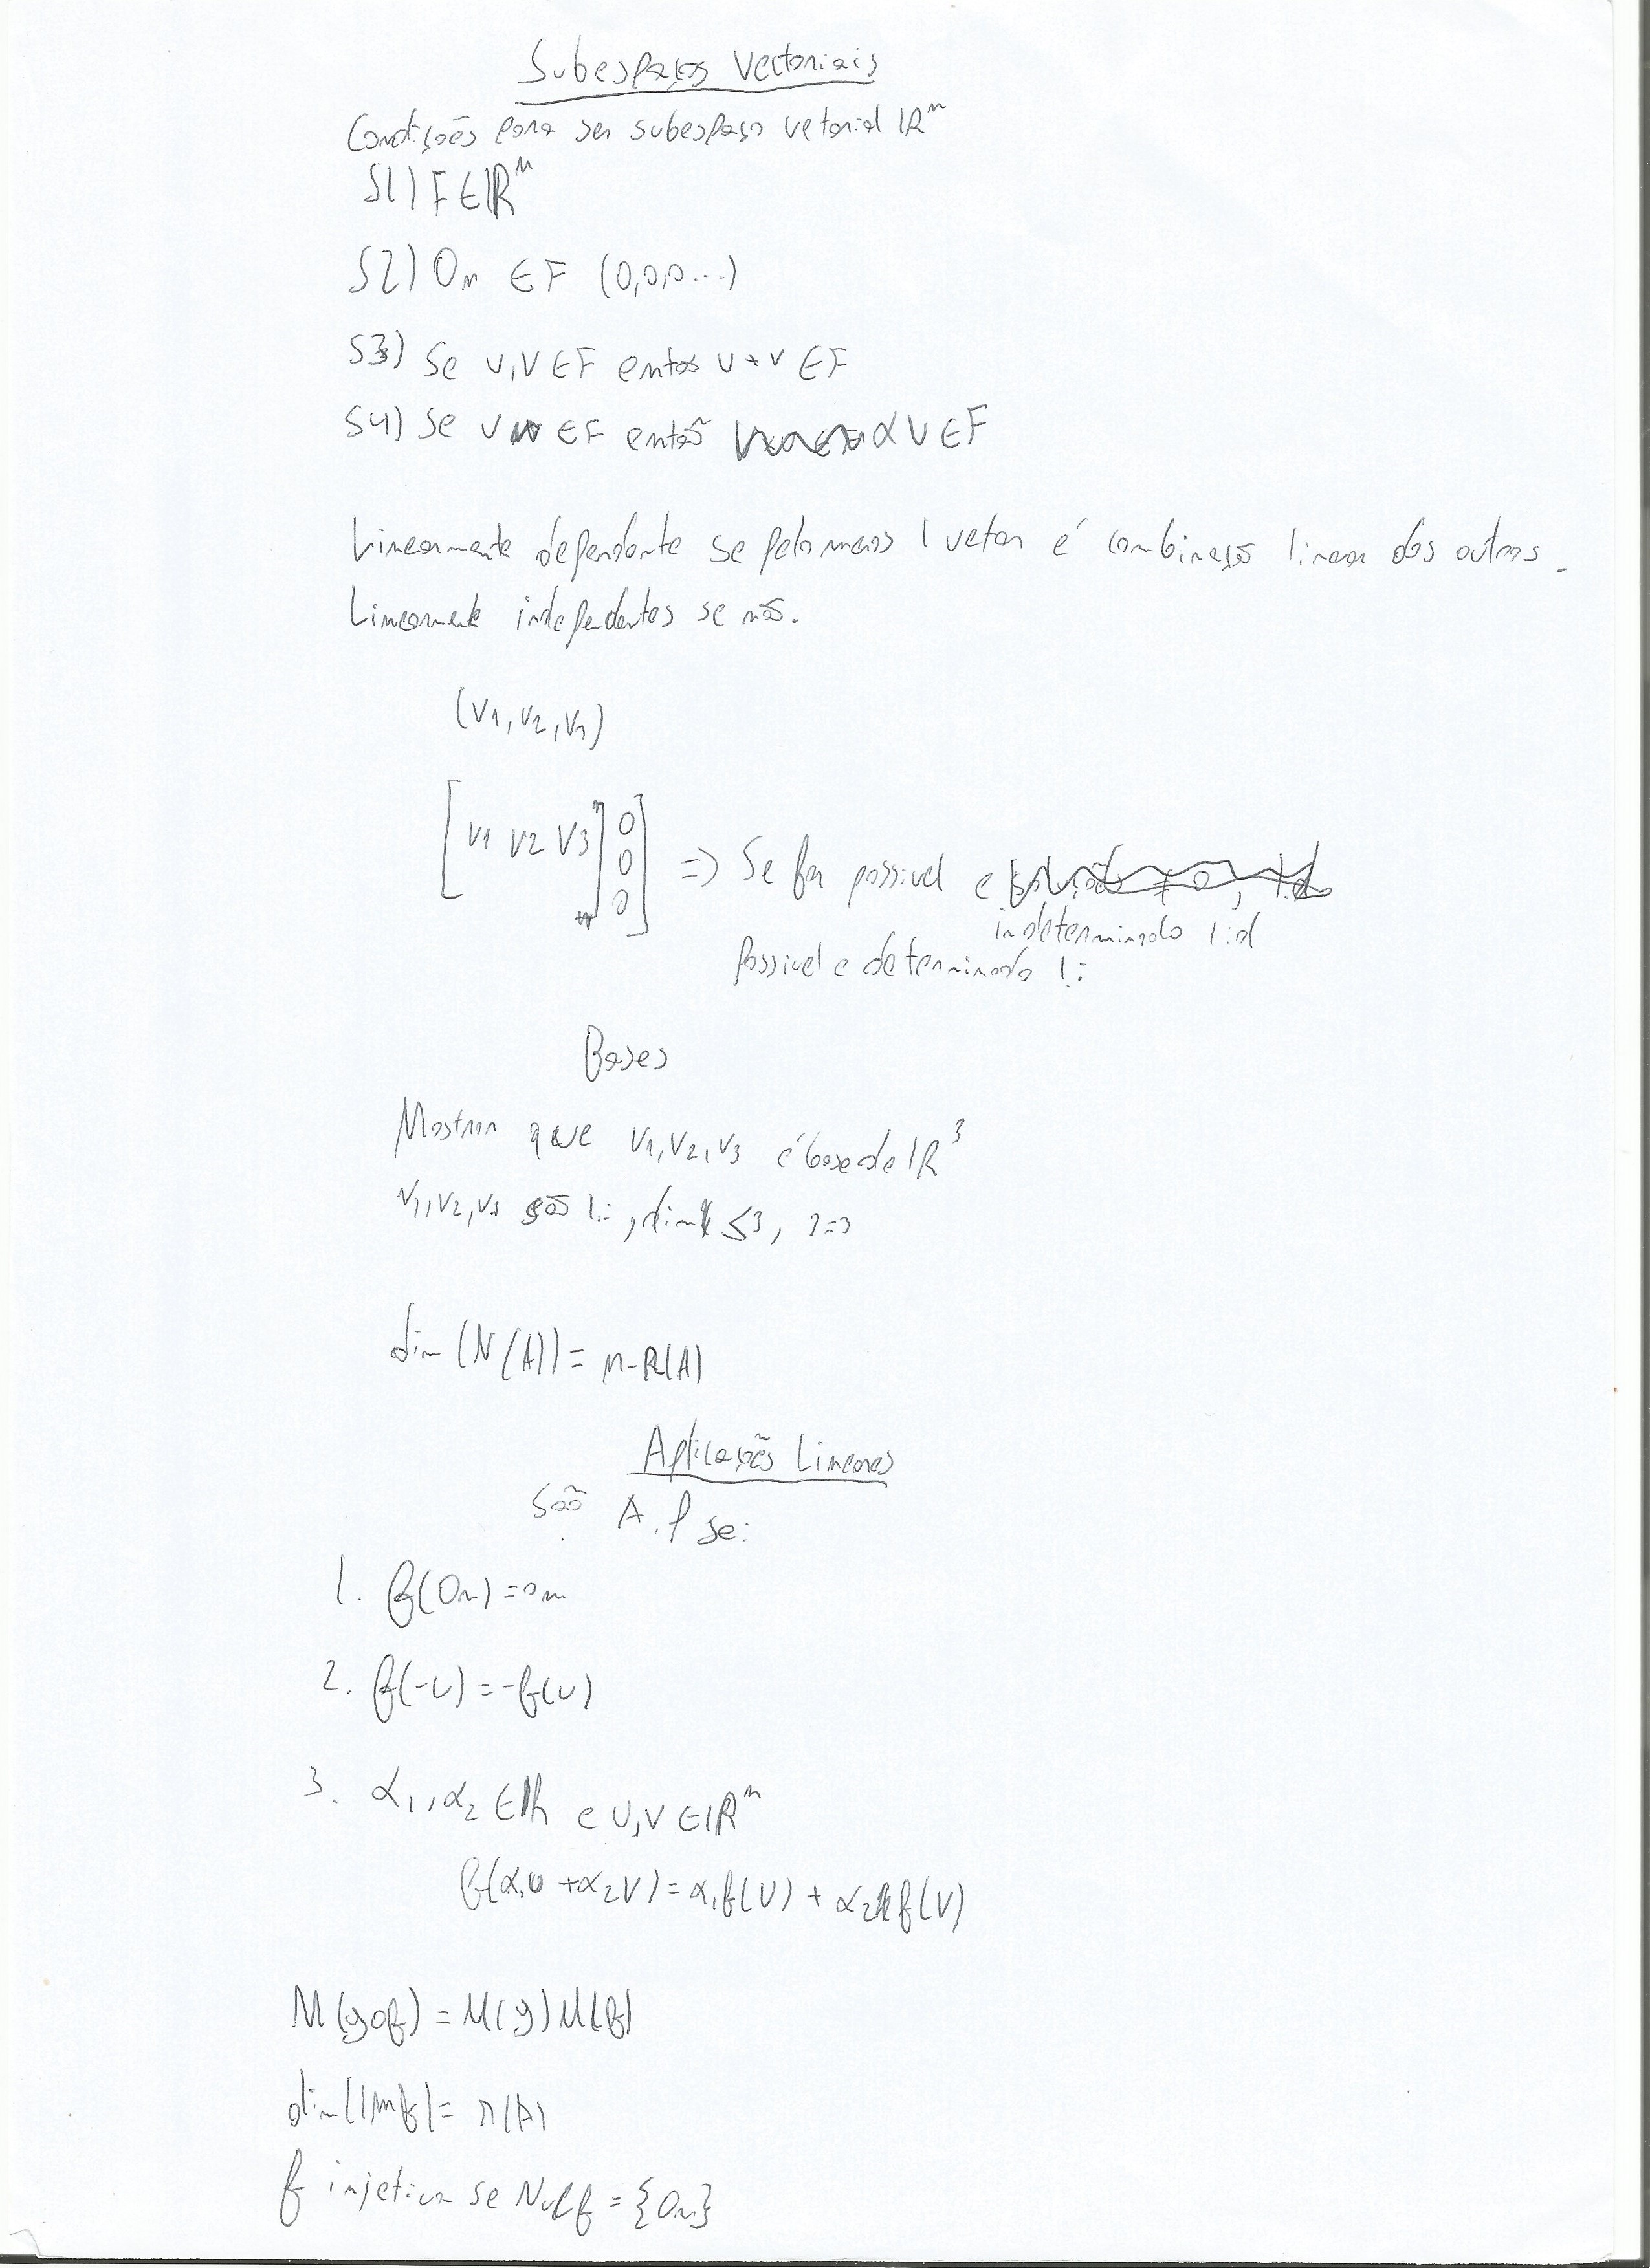 Subespaços Vectoriais
Condições para ser subespaço vetorial ℝⁿ
S1) F ∈ ℝⁿ
S2) 0n ∈ F (0,0,0...)
S3) Se u,v ∈ F então u+v ∈ F
S4) Se u ∈ F então αu ∈ F
Linearmente dependente se pelo menos 1 vetor é combinação linear dos outros.
Linearmente independentes se não.
(v1, v2, v3)
[v1 v2 v3] 0 0 0] => Se for possivel e
indeterminado l.d
possivel e determinado l.i
Bases
Mostrar que v1, v2, v3 é base de ℝ³
v1, v2, v3 são l.i, dim ≤3, 3=3
dim (N(A)) = n-R(A)
Aplicações Lineares
São A.l se:
1. f(0n) = 0m
2. f(-u) = -f(u)
3. α1, α2 ∈ ℝ e u,v ∈ ℝⁿ
f(α1u + α2v) = α1f(u) + α2f(v)
M(gof) = M(g)M(f)
dim(Imf) = r(A)
f injetiva se Nucf = {0n}